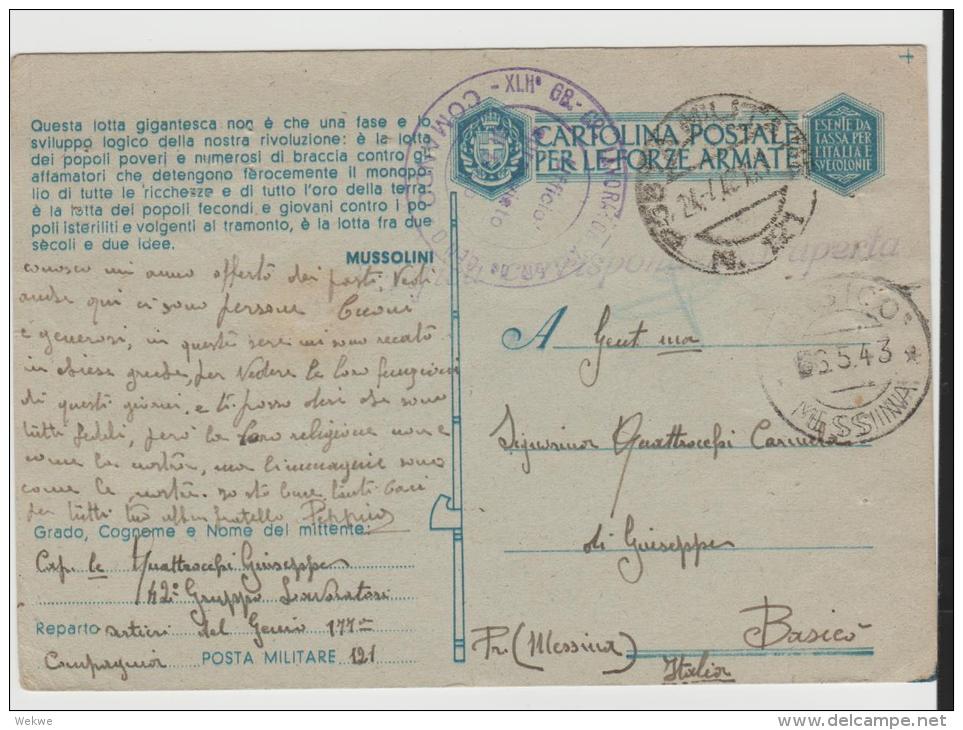 Questa lotta gigantesca non è che una fase e lo
sviluppo logico della nostra rivoluzione: è la lotta
dei popoli poveri e numerosi di braccia contro gli
affamatori che detengono ferocemente il monopo
lio di tutte le ricchezze e di tutto l'oro della terra
è la lotta dei popoli fecondi e giovani contro i po
poli isteriliti e volgenti al tramonto, è la lotta fra due
sècoli e due idee.
MUSSOLINI
CARTOLINA POSTALE
PER LE FORZE ARMATE
ESENTE DA
TASSA PER
L'ITALIA E
SVE COLONIE
XLIIº
COMANDO
Ufficio
N. 121
aperta
6.5.43
MESSINA
conosco mi anno offerto dei pasti Vedi
anche qui ci sono persone
e generosi, in queste sere mi sono recato
in chiese greche, per Vedere le loro funzioni
di questi giorni, e ti posso dire che sono
tutti fedeli, però la loro religione non è
come la nostra, ma l'immagine sono
come le nostre. io sto bene, tanti baci
per tutti tuo fratello Peppino
Grado, Cognome e Nome del mittente:
Cap. le Quattrocchi Giuseppe
42º Gruppo Lavoratori
Reparto artieri del Genio 177ª
Compagnia POSTA MILITARE 121
A Gent ma
Signorina Quattrocchi Carmela
di Giuseppe
Basicò
Pr. (Messina)
Italia
Wekwe